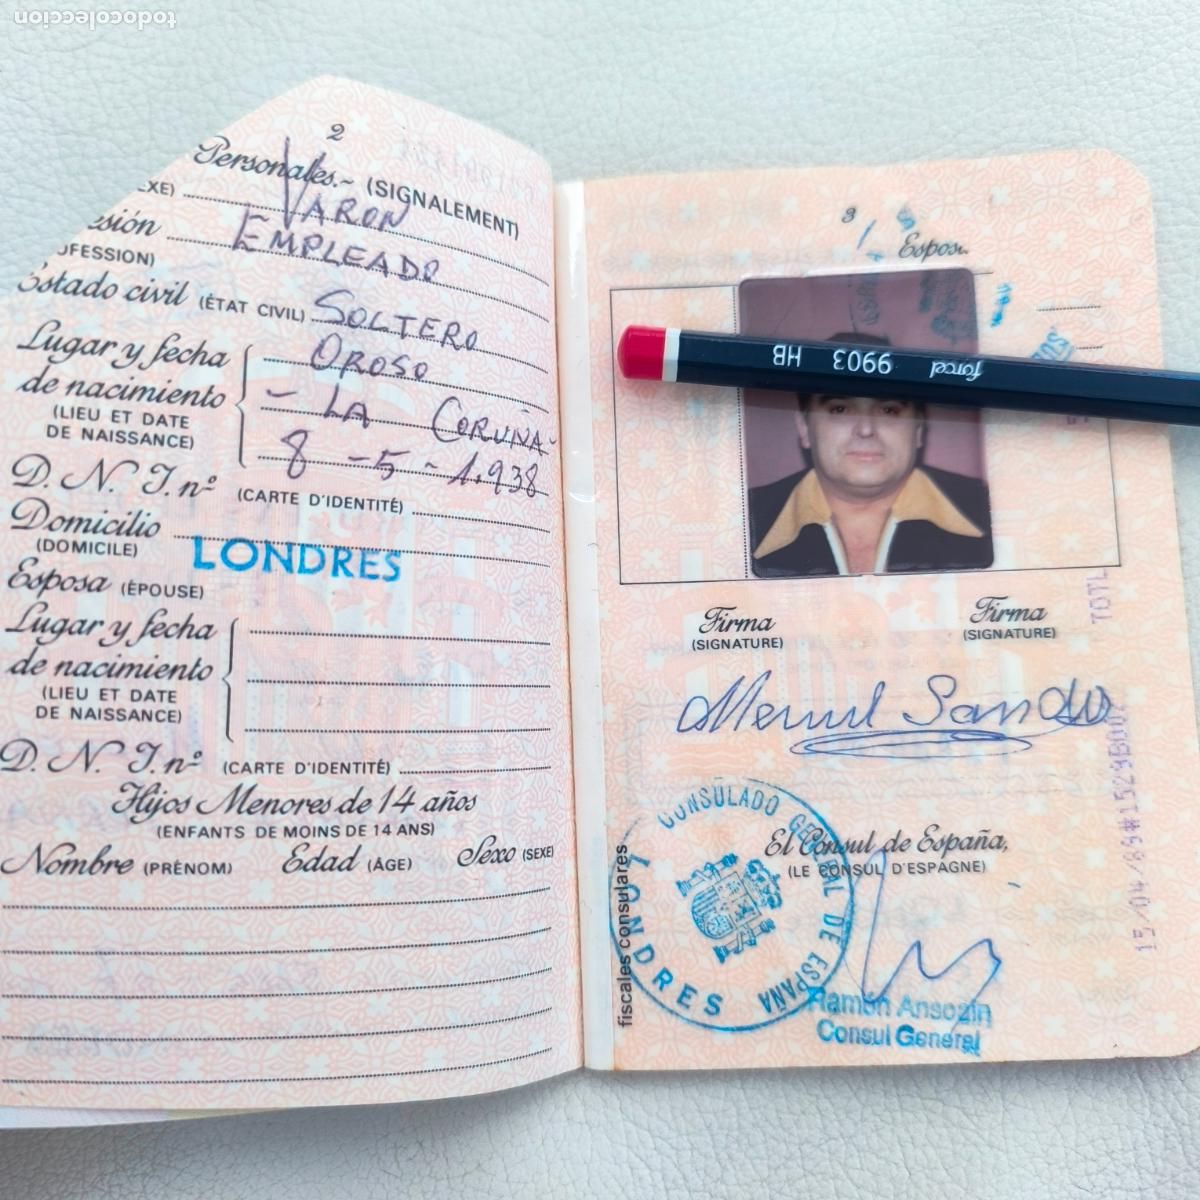 todocoleccion
2
Personales.- (SIGNALEMENT)
EXE) VARON
esión EMPLEADO
OFESSION)
Estado civil (ÉTAT CIVIL) SOLTERO
Lugar y fecha OROSO
de nacimiento - LA CORUÑA -
(LIEU ET DATE
DE NAISSANCE) 8 - 5 - 1.938
D. N. I. nº (CARTE D'IDENTITÉ)
Domicilio
(DOMICILE) LONDRES
Esposa (ÉPOUSE)
Lugar y fecha
de nacimiento
(LIEU ET DATE
DE NAISSANCE)
D. N. I. nº (CARTE D'IDENTITÉ)
Hijos Menores de 14 años
(ENFANTS DE MOINS DE 14 ANS)
Nombre (PRÉNOM) Edad (ÂGE) Sexo (SEXE)
3
Espos
forcel 9903 HB
Firma
(SIGNATURE)
Firma
(SIGNATURE)
CONSULADO GENERAL DE ESPAÑA
LONDRES
El Consul de España,
(LE CONSUL D'ESPAGNE)
fiscales consulares
Ramón Ansoain
Consul General
TOTL